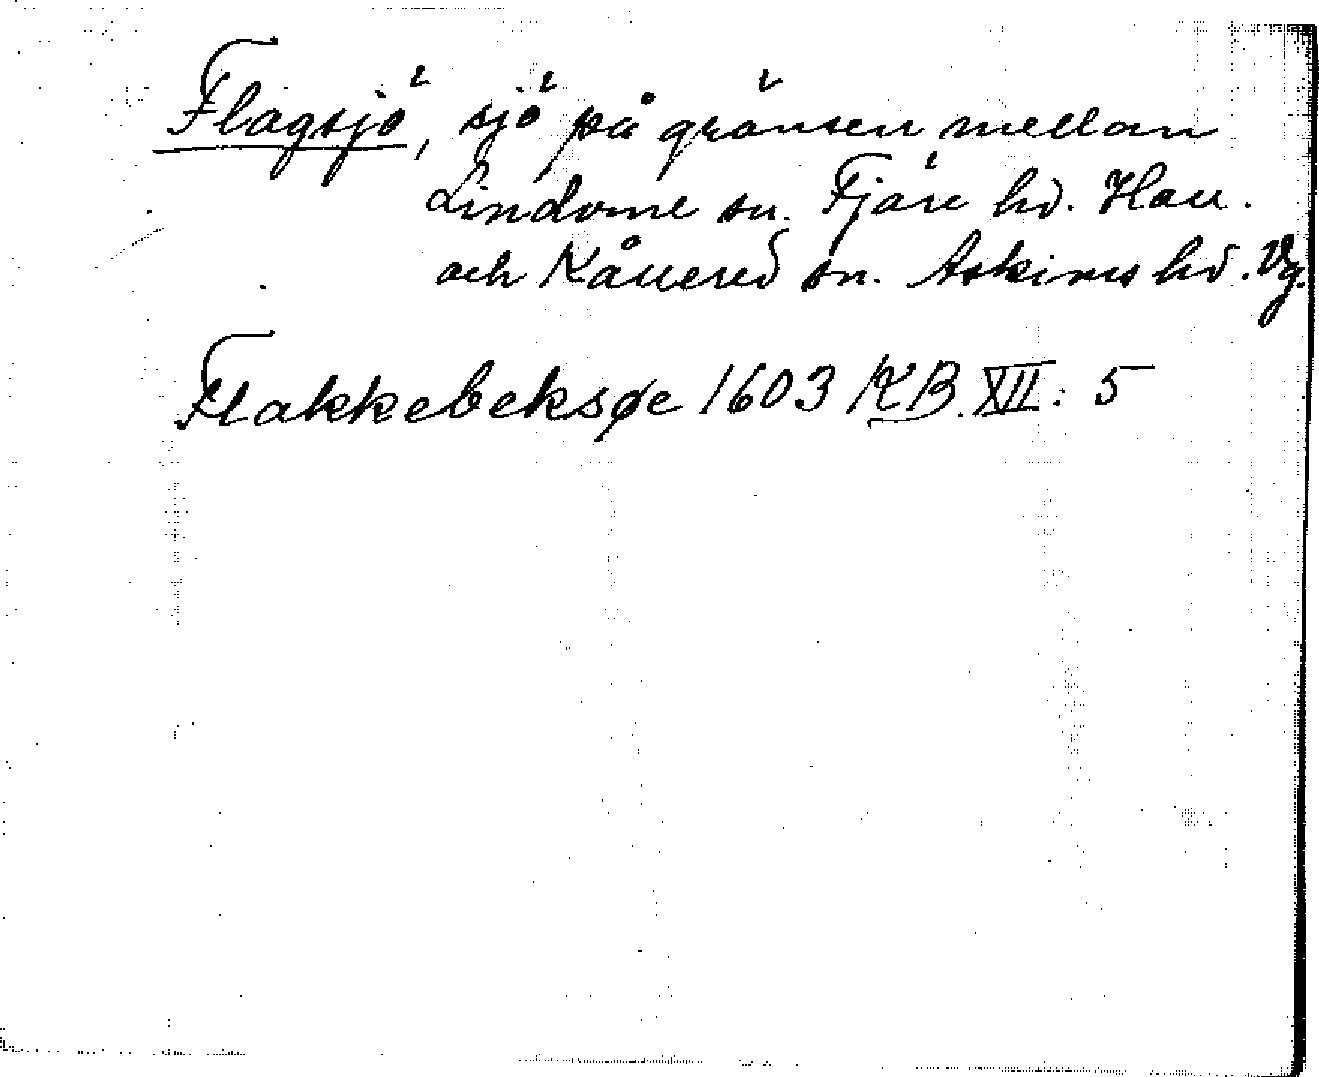 Flagsjö, sjö på gränsen mellan
Lindome sn. Fjäre hd. Hall.
och Kållered sn. Askims hd. Vg.
Flakkebeksøe 1603 KB. XII: 5